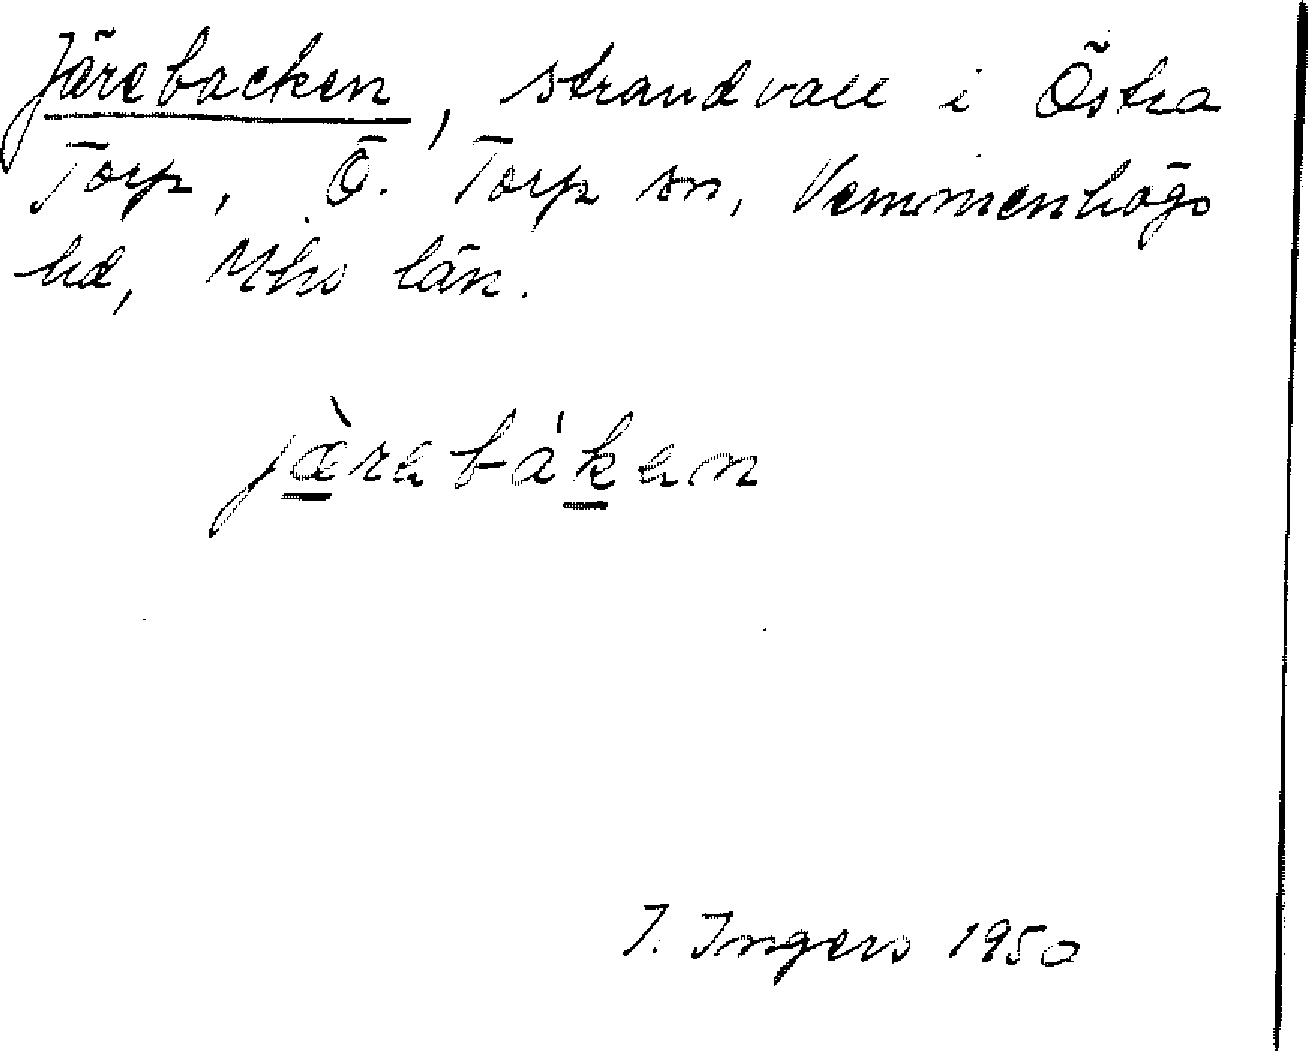 Järebacken, strandvall i Östra
Torp, Ö. Torp sn, Vemmenhögs
hd, Mhs län.
jæ̀rebáken
I. Ingers 1950